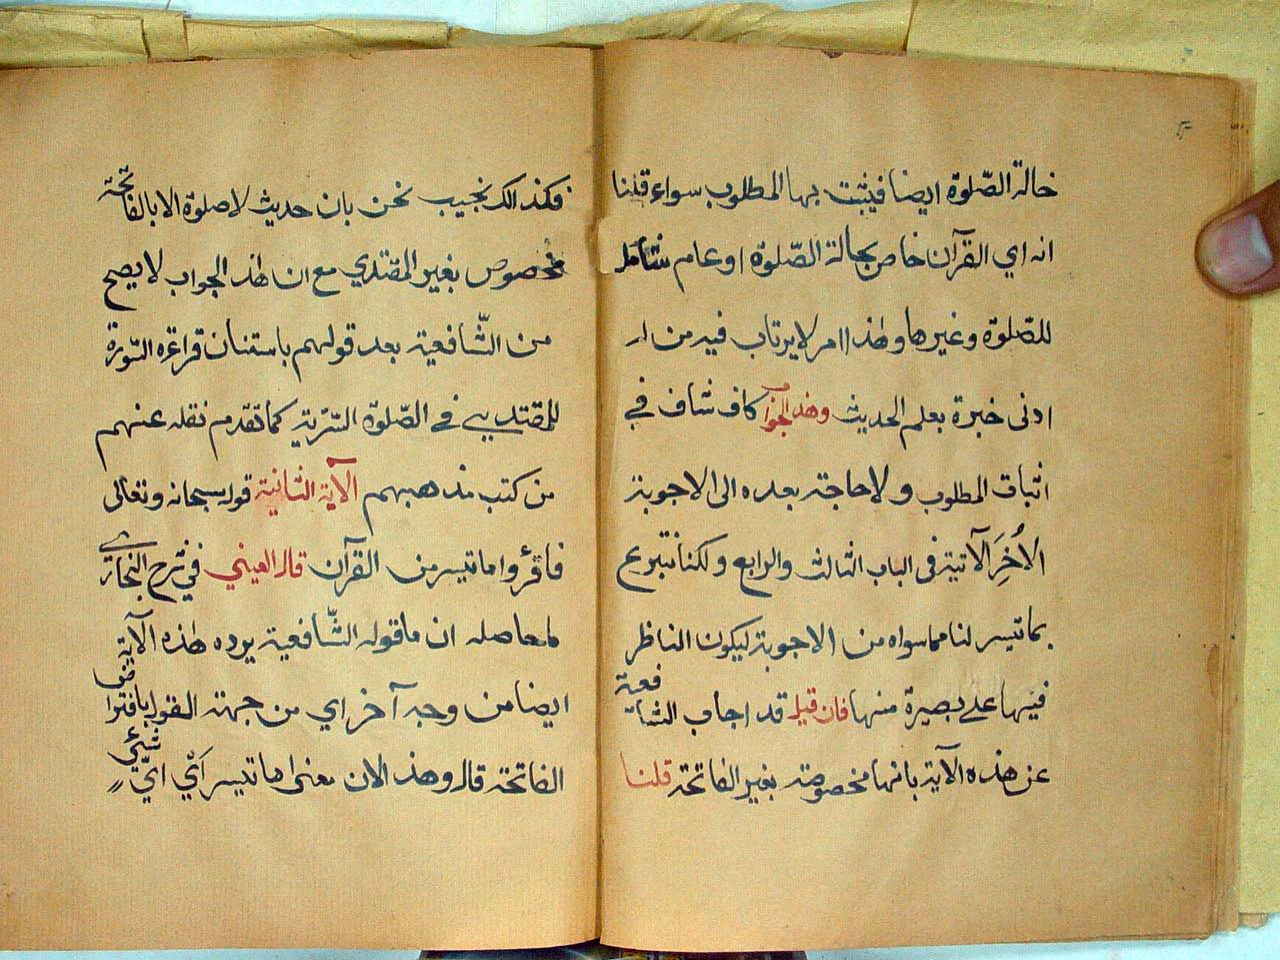 حالة الصّلوة ايضا فيثبت بها المطلوب سواء قلنا
انه اي القرآن خاص بحالة الصّلوة او عام شامل
للصّلوة وغيرها وهذا امر لا يرتاب فيه من له
ادنى خبرة بعلم الحديث وهذا الجواب كاف شاف في
اثبات المطلوب ولا حاجة بعده الى الاجوبة
الأُخَرِ الآتية في الباب الثالث والرابع ولكنا نتبرع
بما تيسر لنا مما سواه من الاجوبة ليكون الناظر
فيها على بصيرة منها فان قيل قد اجاب الشافعية
عن هذه الآية بانها مخصوصة بغير الفاتحة قلنا
فكذالك نجيب نحن بان حديث لا صلوة الا بالفاتحة
مخصوص بغير المقتدي مع ان هذا الجواب لا يصح
من الشّافعية بعد قولهم باستنان قراءة السّورة
للمقتدي في الصّلوة السّرّية كما تقدم نقله عنهم
من كتب مذهبهم الآية الثانية قوله سبحانه وتعالى
فاقرؤا ما تيسر من القرآن قال العيني في شرح البخاري
ما حاصله ان ما قوله الشّافعية يرده هذه الآية
ايضا من وجه آخر اي من جهة القول بافتراض
الفاتحة قال وهذا لان معنى ما تيسر اَيْ ايّ شيْءٍ